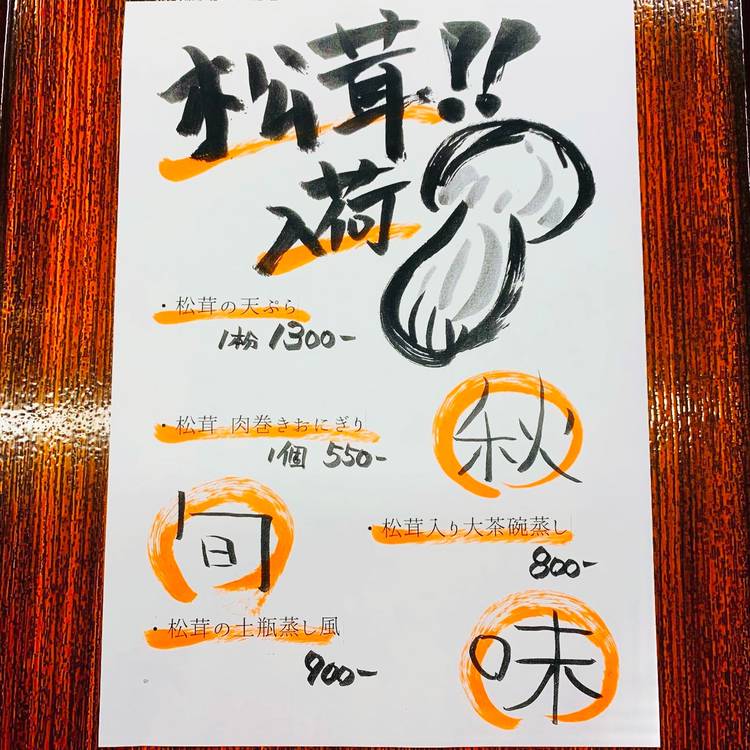 松茸!!
入荷
・松茸の天ぷら
1本分 1300-
・松茸 肉巻きおにぎり
1個 550-
秋
旬
・松茸入り大茶碗蒸し
800-
・松茸の土瓶蒸し風
900-
味